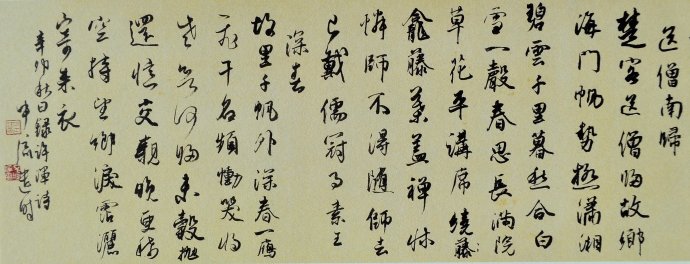 送僧南歸
楚客送僧歸故鄉
海門帆勢極瀟湘
碧雲千里暮愁合白
雪一聲春思長滿院
草花平講席繞藤
龕藤葉蓋禪牀
憐師不得隨師去
已戴儒冠事素王
深春
故里千帆外深春一雁
飛干名頻慟哭將
老欲何歸未穀拋
還憶交親晚更稀
空持望鄉淚霑灑
寄來衣
辛卯秋日錄許渾詩